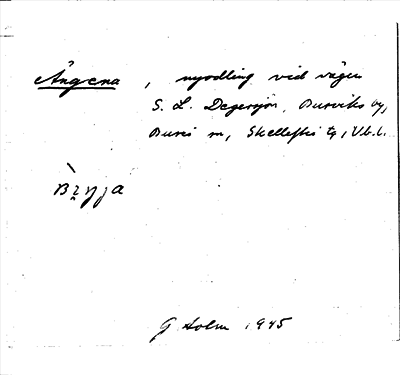 Ängena, nyodling vid vägen
S. L. Degersjön, Bureviks by,
Bureå sn, Skellefteå tg, Vb. l.
G Holm 1945